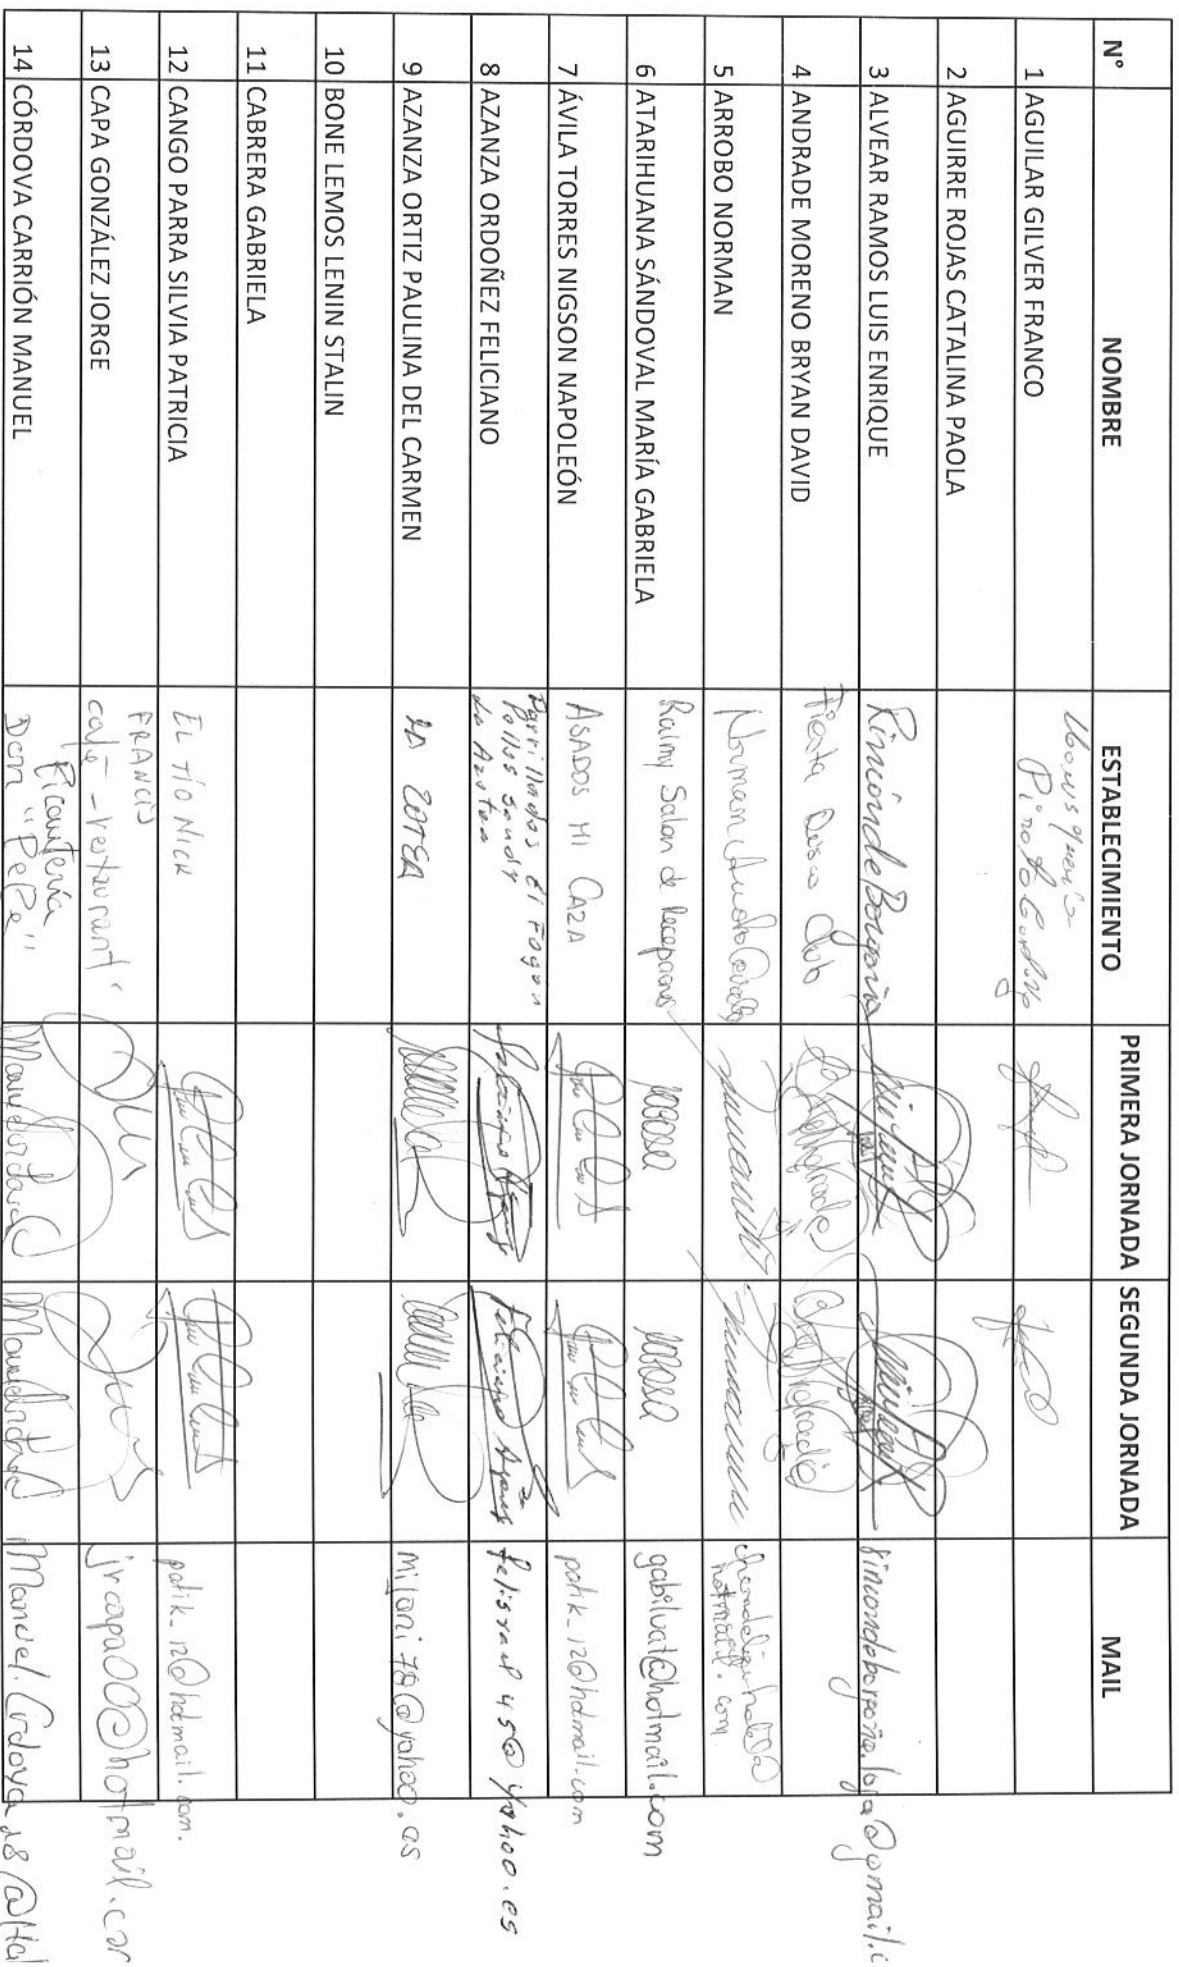 N° NOMBRE ESTABLECIMIENTO PRIMERA JORNADA SEGUNDA JORNADA MAIL
1 AGUILAR GILVER FRANCO
2 AGUIRRE ROJAS CATALINA PAOLA
3 ALVEAR RAMOS LUIS ENRIQUE Rincón de Borgoña
4 ANDRADE MORENO BRYAN DAVID Fiesta Disco Club
5 ARROBO NORMAN Norman hotmail.com
6 ATARIHUANA SÁNDOVAL MARÍA GABRIELA Raimy Salon de Recepciones gabiluat@hotmail.com
7 ÁVILA TORRES NIGSON NAPOLEÓN ASADOS MI CAZA patik_12@hotmail.com
8 AZANZA ORDOÑEZ FELICIANO Parrilladas El Fogon
Pollos Sandy
Feliciano felisrael45@yahoo.es
9 AZANZA ORTIZ PAULINA DEL CARMEN milani78@yahoo.es
10 BONE LEMOS LENIN STALIN
11 CABRERA GABRIELA
12 CANGO PARRA SILVIA PATRICIA EL TÍO NICK patik_12@hotmail.com.
13 CAPA GONZÁLEZ JORGE FRANCIS
café-restaurant jrcapa00@hotmail.com
14 CÓRDOVA CARRIÓN MANUEL Picantería
Don "Pepe"